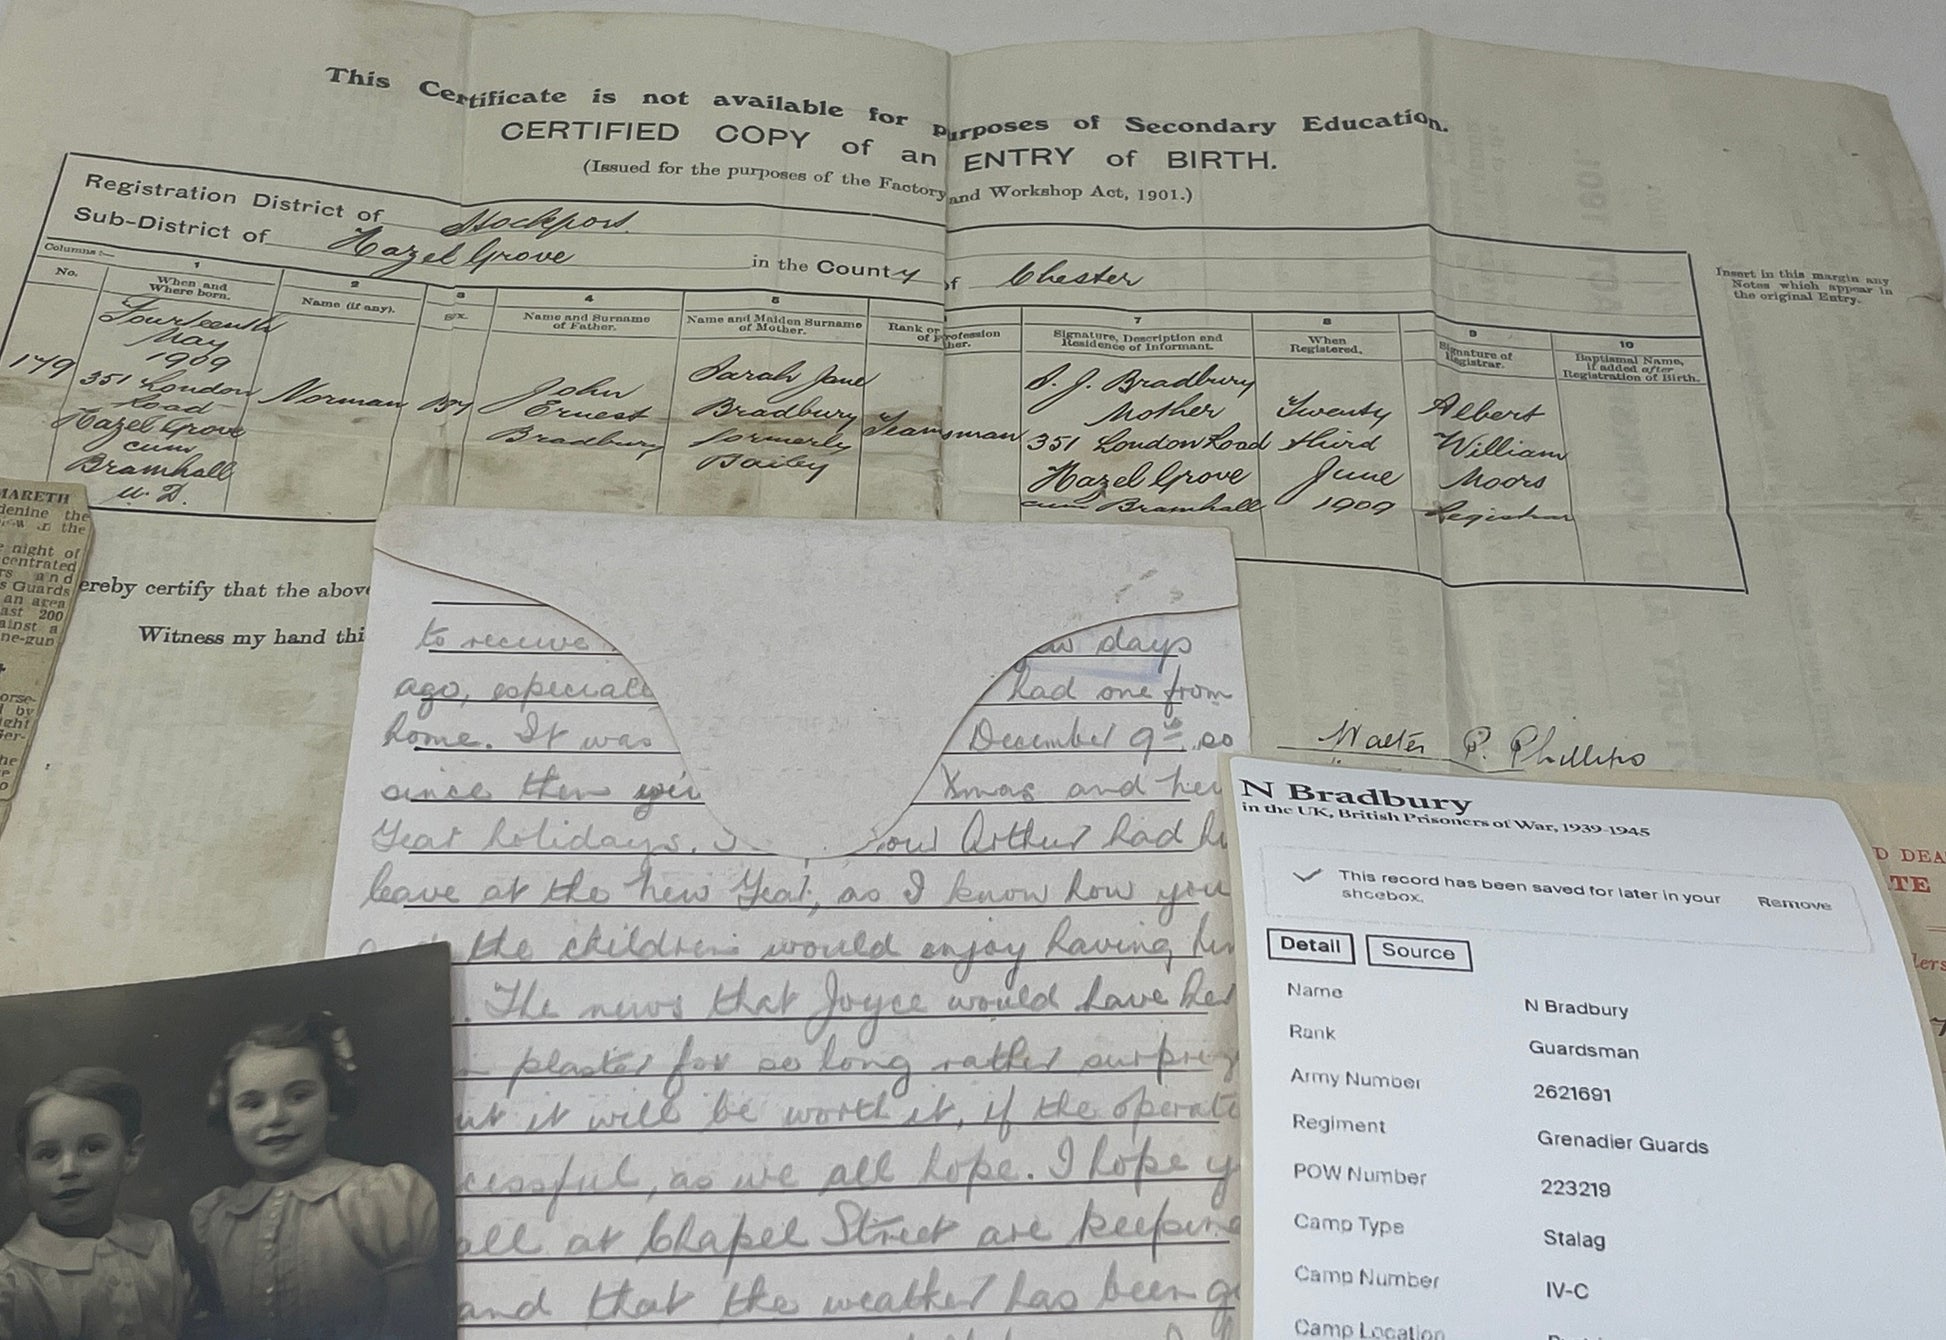 This Certificate is not available for purposes of Secondary Education.
CERTIFIED COPY of an ENTRY of BIRTH.
(Issued for the purposes of the Factory and Workshop Act, 1901.)
Registration District of Stockport.
Sub-District of Hazel Grove in the County of Chester
Insert in this margin any
Notes which appear in
the original Entry.
Columns:— 1 2 3 4 5 7 8 9 10
No.
When and
Where born.
Name (if any).
Sex.
Name and Surname
of Father.
Name and Maiden Surname
of Mother.
Rank or Profession
Signature, Description and
Residence of Informant.
When
Registered.
Signature of
Registrar.
Baptismal Name,
if added after
Registration of Birth.
179
Fourteenth
May
1909
351 London
Road
Hazel Grove
cum
Bramhall
U. D.
Norman
Boy
John
Ernest
Bradbury
Sarah Jane
Bradbury
formerly
Bailey
Teamsman
S. J. Bradbury
Mother
351 London Road
Hazel Grove
cum Bramhall
Twenty
third
June
1909
Albert
William
Moors
Registrar
ereby certify that the above
Witness my hand thi
Walter P. Phillips
MARETH
denine the
the
night of
centrated
rs and
s Guards
an area
ast 200
ainst a
ne-gun
orse-
by
ight
Ger-
he
to receive days
ago, especiall had one from
home. It was December 9th, so
since then Xmas and New
Year holidays. Arthur had hi
leave at the New Year, as I know how you
the children would enjoy having him
. The news that Joyce would have her
plaster for so long rather surpri
ut it will be worth it, if the operati
cessful, as we all hope. I hope y
all at Chapel Street are keeping
and that the weather has been g
N Bradbury
in the UK, British Prisoners of War, 1939-1945
This record has been saved for later in your
shoebox.
Remove
Detail Source
Name N Bradbury
Rank Guardsman
Army Number 2621691
Regiment Grenadier Guards
POW Number 223219
Camp Type Stalag
Camp Number IV-C
Camp Location
D DEA
TE
lers